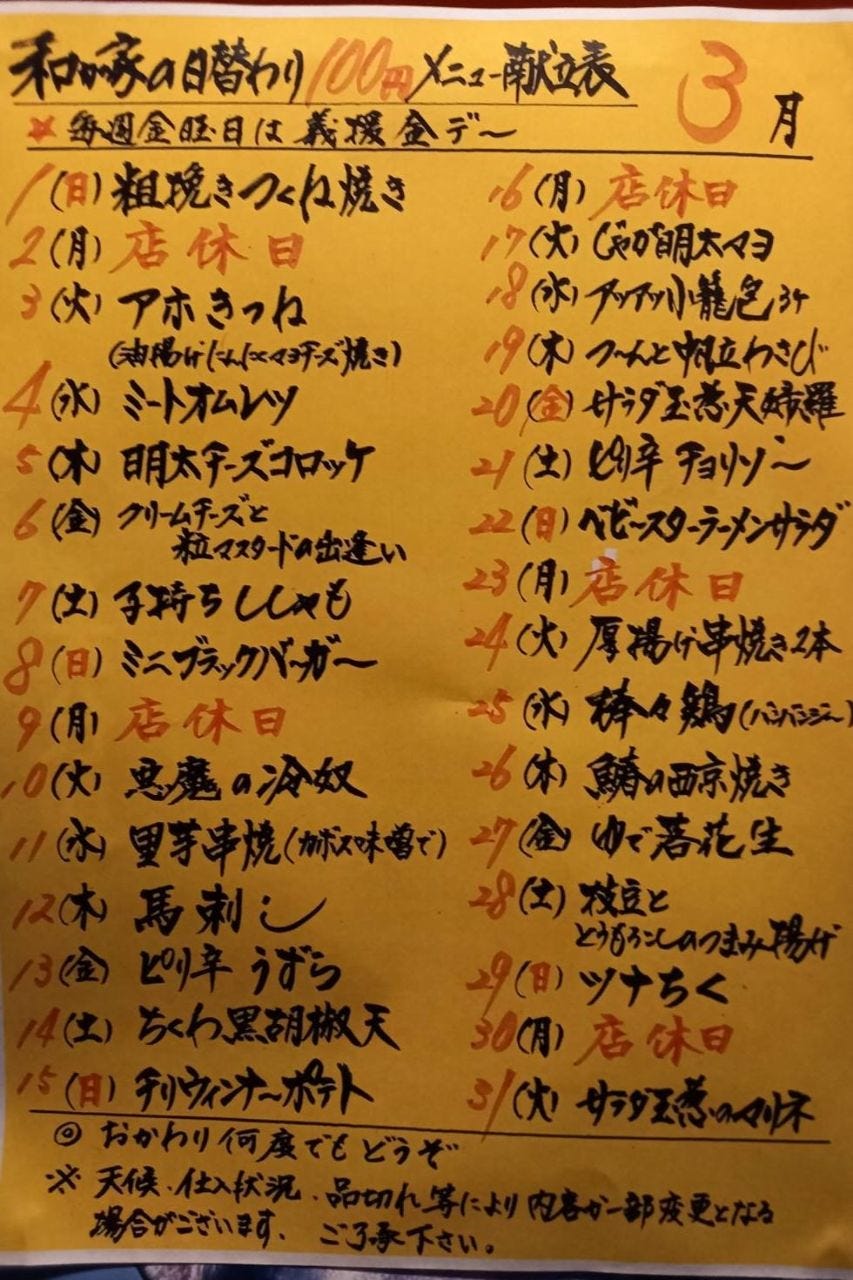 和か家の日替わり100円メニュー献立表
3月
★毎週金曜日は義援金デ〜
1(日)粗挽きつくね焼き
2(月)店休日
3(火)アホきつね
(油揚げにんにくマヨチーズ焼き)
4(水)ミートオムレツ
5(木)明太チーズコロッケ
6(金)クリームチーズと
粒マスタードの出逢い
7(土)子持ちししゃも
8(日)ミニブラックバーガ〜
9(月)店休日
10(火)悪魔の冷奴
11(水)里芋串焼(カボス味噌で)
12(木)馬刺し
13(金)ピリ辛うずら
14(土)ちくわ黒胡椒天
15(日)チリウィンナーポテト
16(月)店休日
17(火)じゃが明太マヨ
18(水)アツアツ小籠包3ケ
19(木)つ〜んと帆立わさび
20(金)サラダ玉葱天婦羅
21(土)ピリ辛チョリソ〜
22(日)ベビースターラーメンサラダ
23(月)店休日
24(火)厚揚げ串焼き2本
25(水)棒々鶏(バンバンジー)
26(木)鰆の西京焼き
27(金)ゆで落花生
28(土)枝豆と
とうもろこしのつまみ揚げ
29(日)ツナちく
30(月)店休日
31(火)サラダ玉葱のマリネ
◎おかわり何度でもどうぞ
※天候・仕入状況・品切れ等により内容が一部変更となる
場合がございます。ご了承下さい。